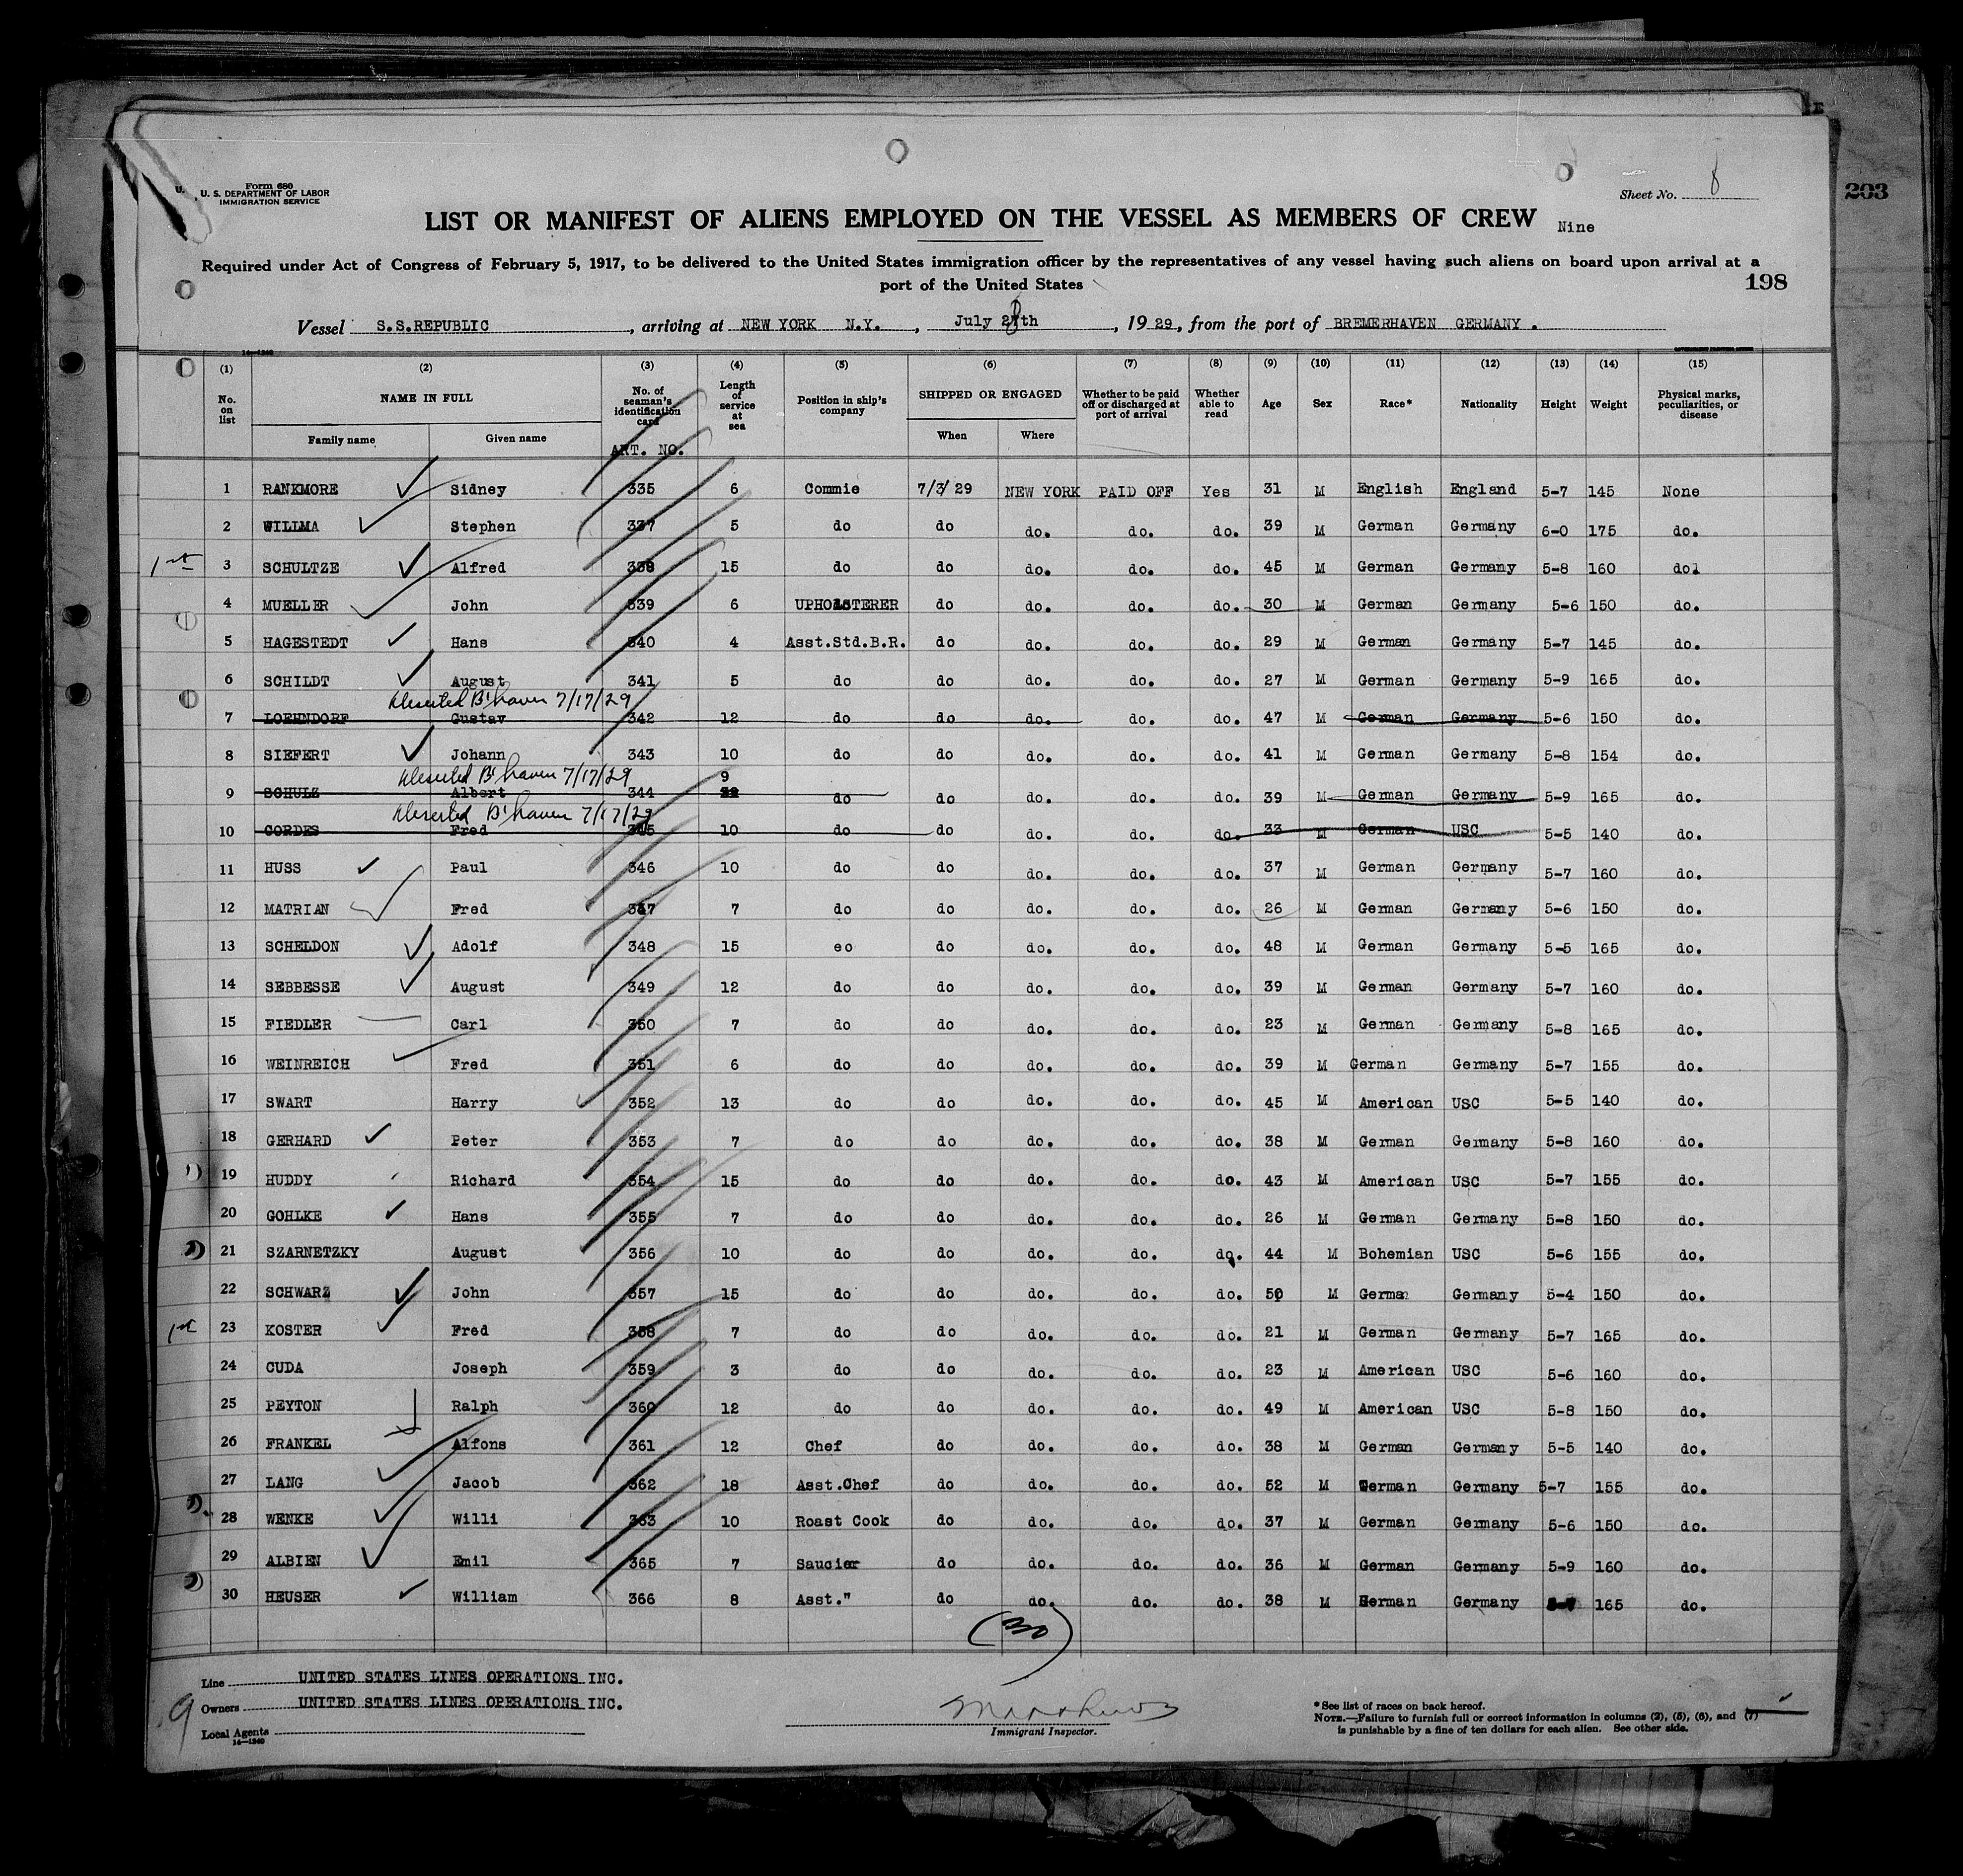 203
Form 680
U. S. DEPARTMENT OF LABOR
IMMIGRATION SERVICE
Sheet No. 8
LIST OR MANIFEST OF ALIENS EMPLOYED ON THE VESSEL AS MEMBERS OF CREW Nine
Required under Act of Congress of February 5, 1917, to be delivered to the United States immigration officer by the representatives of any vessel having such aliens on board upon arrival at a
port of the United States
198
Vessel S.S.REPUBLIC, arriving at NEW YORK N.Y., July 28th, 1929, from the port of BREMERHAVEN GERMANY.
14—1240
(1) (2) (3) (4) (5) (6) (7) (8) (9) (10) (11) (12) (13) (14) (15)
No. on list NAME IN FULL Family name Given name No. of seaman's identification card ART. NO. Length of service at sea Position in ship's company SHIPPED OR ENGAGED When Where Whether to be paid off or discharged at port of arrival Whether able to read Age Sex Race* Nationality Height Weight Physical marks, peculiarities, or disease
1 RANKMORE Sidney 335 6 Commie 7/3/29 NEW YORK PAID OFF Yes 31 M English England 5-7 145 None
2 WILLMA Stephen 337 5 do do do. do. do. 39 M German Germany 6-0 175 do.
1st 3 SCHULTZE Alfred 338 15 do do do. do. do. 45 M German Germany 5-8 160 do1
4 MUELLER John 339 6 UPHOLSTERER do do. do. do. 30 M German Germany 5-6 150 do.
5 HAGESTEDT Hans 340 4 Asst.Std.B.R. do do. do. do. 29 M German Germany 5-7 145 do.
6 SCHILDT August 341 5 do do do. do. do. 27 M German Germany 5-9 165 do.
Deserted B'haven 7/17/29
7 LOEHNDORF Gustav 342 12 do do do. do. do. 47 M German Germany 5-6 150 do.
8 SIEFERT Johann 343 10 do do do. do. do. 41 M German Germany 5-8 154 do.
Deserted B'haven 7/17/29
9 SCHULZ Albert 344 9 do do do. do. do. 39 M German Germany 5-9 165 do.
Deserted B'haven 7/17/29
10 CORDES Fred 345 10 do do do. do. do. 33 M German USC 5-5 140 do.
11 HUSS Paul 346 10 do do do. do. do. 37 M German Germany 5-7 160 do.
12 MATRIAN Fred 347 7 do do do. do. do. 26 M German Germany 5-6 150 do.
13 SCHELDON Adolf 348 15 eo do do. do. do. 48 M German Germany 5-5 165 do.
14 SEBBESSE August 349 12 do do do. do. do. 39 M German Germany 5-7 160 do.
15 FIEDLER Carl 350 7 do do do. do. do. 23 M German Germany 5-8 165 do.
16 WEINREICH Fred 351 6 do do do. do. do. 39 M German Germany 5-7 155 do.
17 SWART Harry 352 13 do do do. do. do. 45 M American USC 5-5 140 do.
18 GERHARD Peter 353 7 do do do. do. do. 38 M German Germany 5-8 160 do.
19 HUDDY Richard 354 15 do do do. do. do. 43 M American USC 5-7 155 do.
20 GOHLKE Hans 355 7 do do do. do. do. 26 M German Germany 5-8 150 do.
21 SZARNETZKY August 356 10 do do do. do. do. 44 M Bohemian USC 5-6 155 do.
22 SCHWARZ John 357 15 do do do. do. do. 50 M German Germany 5-4 150 do.
1st 23 KOSTER Fred 358 7 do do do. do. do. 21 M German Germany 5-7 165 do.
24 CUDA Joseph 359 3 do do do. do. do. 23 M American USC 5-6 160 do.
25 PEYTON Ralph 360 12 do do do. do. do. 49 M American USC 5-8 150 do.
26 FRANKEL Alfons 361 12 Chef do do. do. do. 38 M German Germany 5-5 140 do.
27 LANG Jacob 362 18 Asst.Chef do do. do. do. 52 M German Germany 5-7 155 do.
28 WENKE Willi 363 10 Roast Cook do do. do. do. 37 M German Germany 5-6 150 do.
29 ALBIEN Emil 365 7 Saucier do do. do. do. 36 M German Germany 5-9 160 do.
30 HEUSER William 366 8 Asst." do do. do. do. 38 M German Germany 165 do.
(30)
Line UNITED STATES LINES OPERATIONS INC.
Owners UNITED STATES LINES OPERATIONS INC.
Local Agents
14—1240
9
Immigrant Inspector.
*See list of races on back hereof.
NOTE.—Failure to furnish full or correct information in columns (2), (5), (6), and (7)
is punishable by a fine of ten dollars for each alien. See other side.